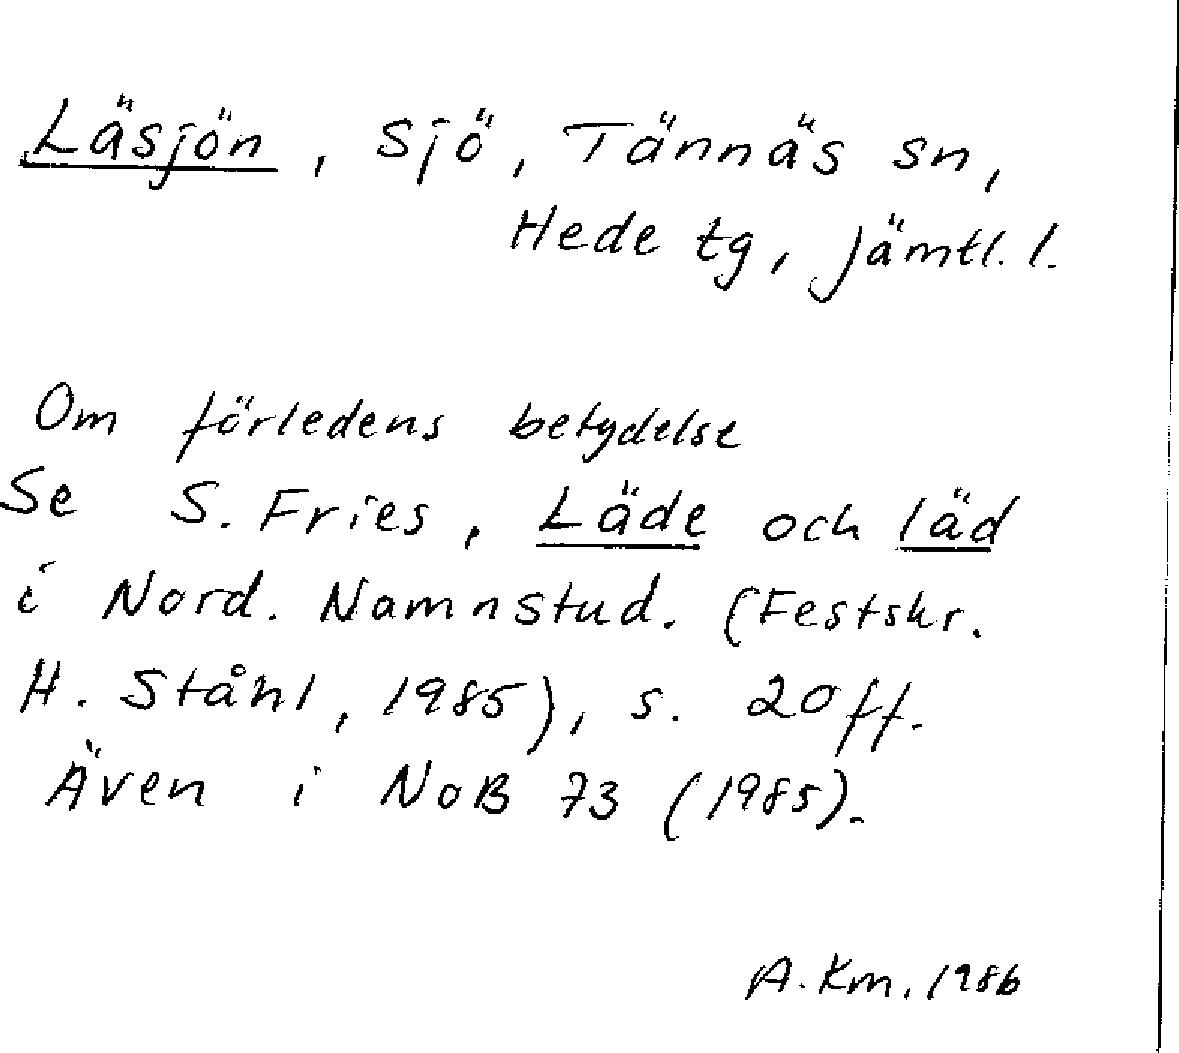 Läsjön, sjö, Tännäs sn,
Hede tg, Jämtl. l.
Om förledens betydelse
Se S. Fries, Läde och läd
i Nord. Namnstud. (Festskr.
H. Ståhl, 1985), s. 20 ff.
Även i NoB 73 (1985).
A. Km. 1986